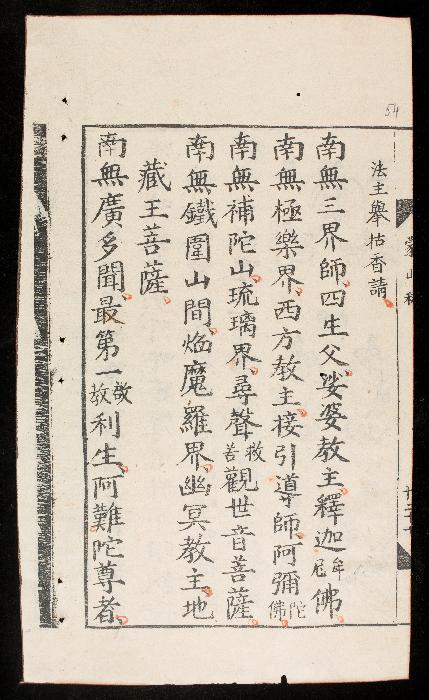 54
蒙山科
法主舉拈香請
南無三界師四生父娑婆教主釋迦牟尼佛
南無極樂界西方教主接引導師阿彌陀佛
南無補陀山琉璃界尋聲救苦觀世音菩薩
南無鐵圍山間焰魔羅界幽冥教主地
藏王菩薩
南無廣多聞最第一敬教利生阿難陀尊者